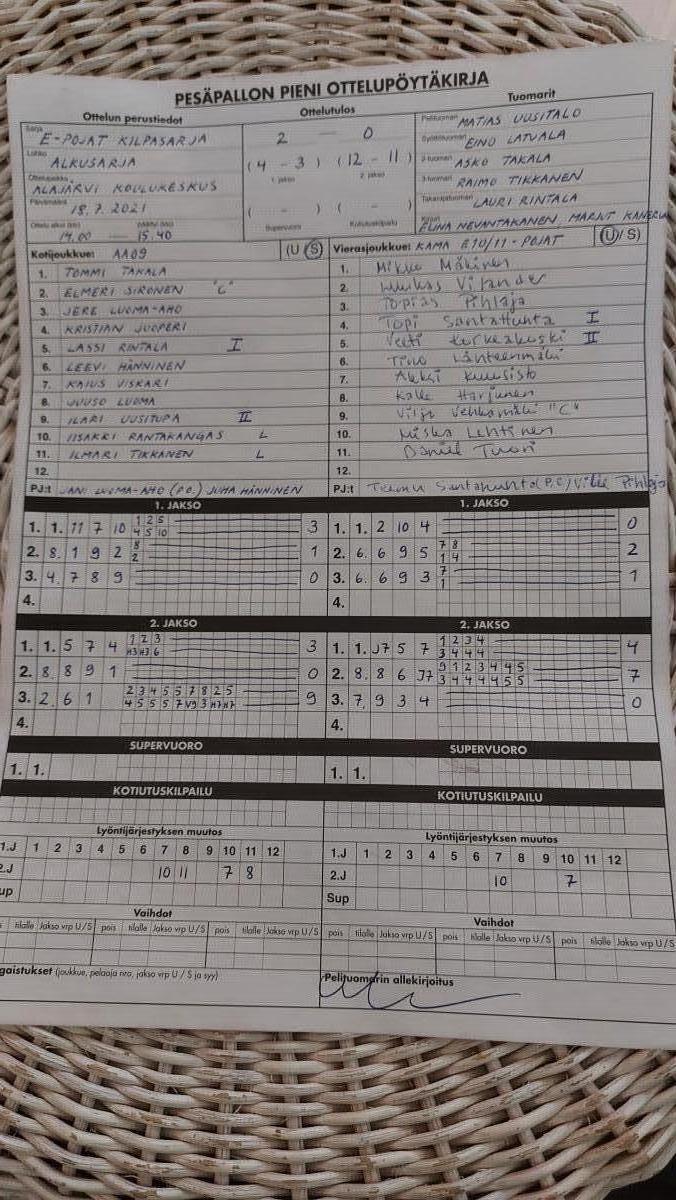 PESÄPALLON PIENI OTTELUPÖYTÄKIRJA
Ottelun perustiedot
Sarja E-POJAT KILPASARJA
Lohko ALKUSARJA
Ottelupaikka ALAJÄRVI KOULUKESKUS
Päivämäärä 18.7.2021
Ottelu alkoi (klo) päättyi (klo)
14.00 — 15.40
Ottelutulos
2 — 0
(4 - 3) (12 - 11)
1. jakso 2. jakso
( - ) ( - )
Supervuoro Kotiutuskilpailu
Tuomarit
Pelituomari MATIAS UUSITALO
Syöttötuomari EINO LATVALA
2-tuomari ASKO TAKALA
3-tuomari RAIMO TIKKANEN
Takarajatuomari LAURI RINTALA
Kirjuri ELINA NEVANTAKANEN, MARJUT
Kotijoukkue: AA09 (U/S)
1. TOMMI TAKALA
2. ELMERI SIRONEN "C"
3. JERE LUOMA-AHO
4. KRISTIAN JUOPERI
5. LASSI RINTALA I
6. LEEVI HÄNNINEN
7. KAIUS VISKARI
8. JUUSO LUOMA
9. ILARI UUSITUPA II
10. IISAKRI RANTAKANGAS L
11. ILMARI TIKKANEN L
12.
PJ:t JANI LUOMA-AHO (P.O.) JUHA HÄNNINEN
Vierasjoukkue: KAMA E10/11-POJAT (U/S)
1. Mikko Mäkinen
2. Vilander
3. Topias Pihlaja
4. Topi Santahuhta I
5. Veeti Korkeakoski II
6. Tino Länteenmäki
7. Aleksi Kuusisto
8. Kalle Harjunen
9. Viljo Vehkamäki "C"
10. Miska Lehtinen
11. Daniel Tuori
12.
PJ:t Teemu Santahuhta (P.C) / Ville Pihlaja
1. JAKSO
1. 1. 11 7 10 1 2 5 3
4 5 10
2. 8. 1 9 2 8 1
2
3. 4. 7 8 9 0
4.
1. JAKSO
1. 1. 2 10 4 0
2. 6. 6 9 5 7 8 2
1 4
3. 6. 6 9 3 7 1
1
4.
2. JAKSO
1. 1. 5 7 4 1 2 3 3
H3 H3 6
2. 8. 8 9 1 0
3. 2. 6 1 2 3 4 5 5 7 8 2 5 9
4 5 5 5 7 V9 3 H7 H7
4.
2. JAKSO
1. 1. J7 5 7 1 2 3 4 4
3 4 4 4
2. 8. 8 6 J7 9 1 2 3 4 4 5 7
3 4 4 4 4 5 5
3. 7. 9 3 4 0
4.
SUPERVUORO
1. 1.
SUPERVUORO
1. 1.
KOTIUTUSKILPAILU
KOTIUTUSKILPAILU
Lyöntijärjestyksen muutos
1.J 1 2 3 4 5 6 7 8 9 10 11 12
2.J 10 11 7 8
up
Lyöntijärjestyksen muutos
1.J 1 2 3 4 5 6 7 8 9 10 11 12
2.J 10 7
Sup
Vaihdot
tilalle Jakso vrp U/S pois tilalle Jakso vrp U/S pois tilalle Jakso vrp U/S
Vaihdot
pois tilalle Jakso vrp U/S pois tilalle Jakso vrp U/S pois tilalle Jakso vrp U/S
gaistukset (joukkue, pelaaja nro, jakso vrp U / S ja syy)
Pelituomarin allekirjoitus